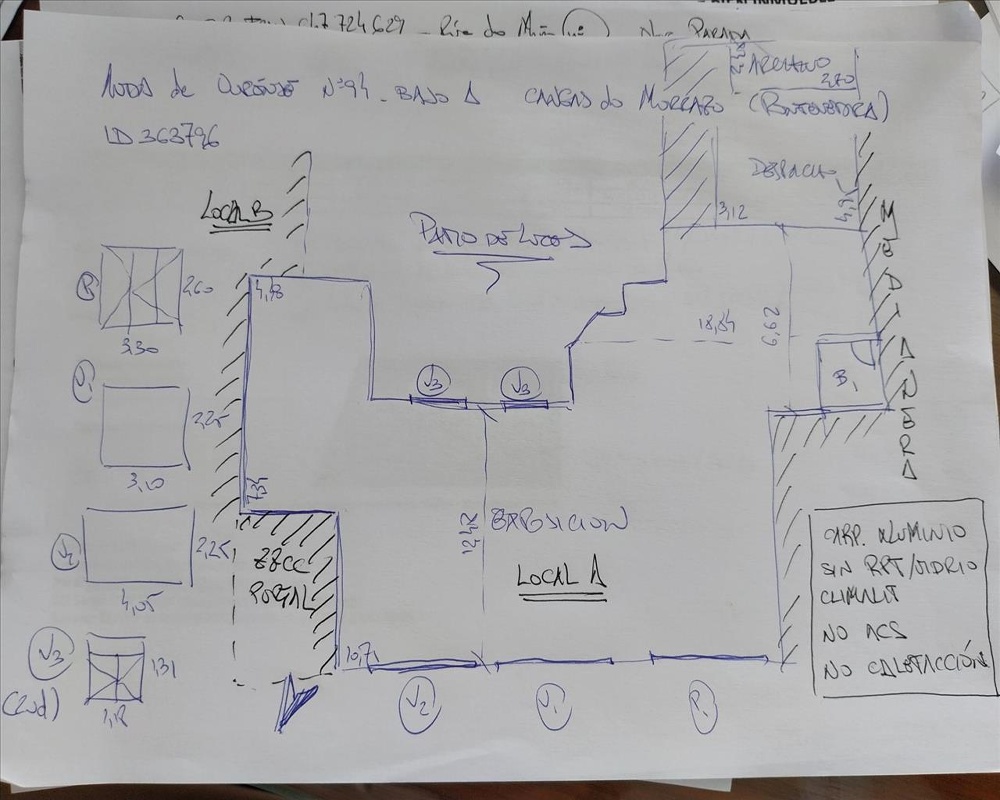 724629 - Rúa do
PARADA
ARCHIVO
2,70
AVDA de OURENSE Nº94. BAJO A CANGAS do MORRAZO (PONTEVEDRA)
ID 363796
DESPACHO
LOCAL B
3,12
PATIO DE LUCES
MEDIANERA
P1
2,60
3,30
4,98
18,84
6,62
V1
2,25
3,10
V3
V3
B1
V2
2,25
4,05
7,34
12,42
EXPOSICION
ZZCC
PORTAL
LOCAL A
CARP. ALUMINIO
SIN RPT/VIDRIO
CLIMALIT
NO ACS
NO CALEFACCIÓN
V3
(2ud)
1,31
1,12
10,71
V2
V1
P1